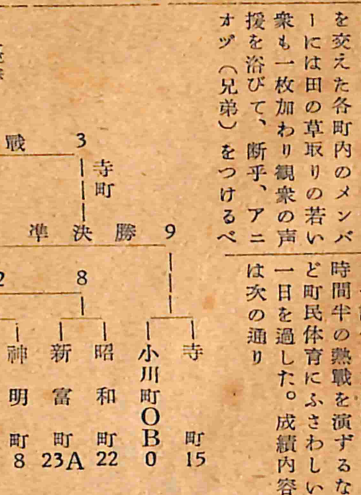 を交えた各町内のメンバ
ーには田の草取りの若い
衆も一枚加わり観衆の声
援を浴びて、断乎、アニ
オヅ（兄弟）をつけるべ
時間半の熱戰を演ずるな
ど町民体育にふさわしい
一日を過した。成績内容
は次の通り
戰 3
寺町
準決勝 9
2 8
寺町 15
小川町OB 0
昭和町 22
新富町 23A
神明町 8